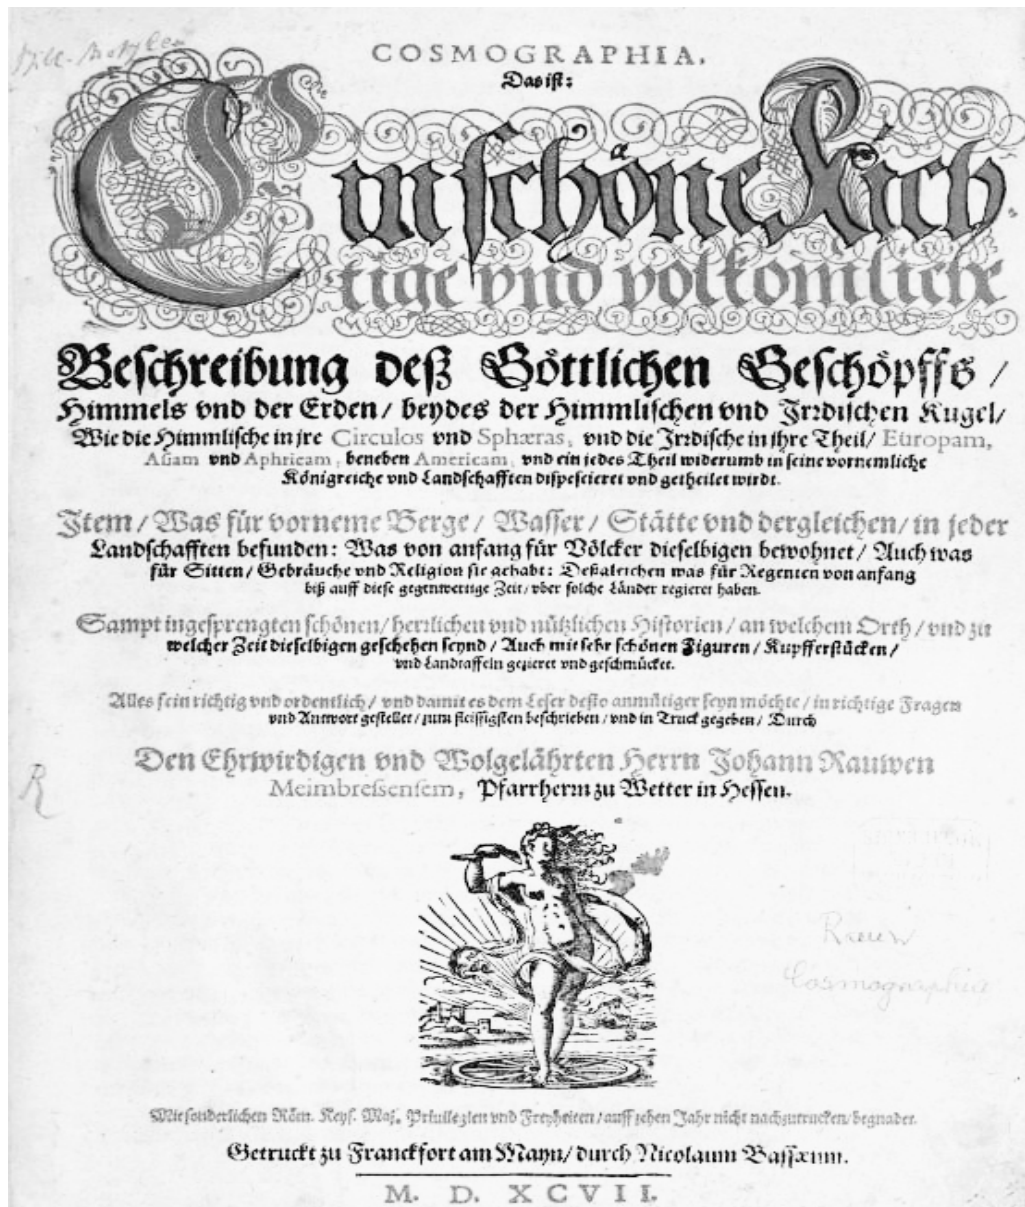 COSMOGRAPHIA.
Das ist:
Ein schöne Rich-
tige vnd volkom̄liche
Beschreibung deß Göttlichen Geschöpffs /
Himmels vnd der Erden / beydes der Himmlischen vnd Jrrdischen Kugel /
Wie die Himmlische in jre Circulos vnd Sphæras, vnd die Jrrdische in jhre Theil / Europam,
Asiam vnd Aphricam, beneben Americam, vnd ein jedes Theil widerumb in seine vornemliche
Königreiche vnd Landschafften dispescieret vnd getheilet wirdt.
Jtem / Was für vorneme Berge / Wasser / Stätte vnd dergleichen / in jeder
Landschafften befunden: Was von anfang für Völcker dieselbigen bewohnet / Auch was
für Sitten / Gebräuche vnd Religion sie gehabt: Deßgleichen was für Regenten von anfang
biß auff diese gegenwertige Zeit / vber solche Länder regieret haben.
Sampt ingesprengten schönen / herrlichen vnd nützlichen Historien / an welchem Orth / vnd zu
welcher Zeit dieselbigen geschehen seynd / Auch mit sehr schönen Figuren / Kupfferstücken /
vnd Landtaffeln gezieret vnd geschmücket.
Alles fein richtig vnd ordentlich / vnd damit es dem Leser desto anmütiger seyn möchte / in richtige Fragen
vnd Antwort gestellet / zum fleissigsten beschrieben / vnd in Truck gegeben / Durch
Den Ehrwirdigen vnd Wolgelährten Herrn Johann Rauwen
Meimbressensem, Pfarrherrn zu Wetter in Hessen.
R
Rauw
Cosmographia
Mit sonderlichen Röm. Keys. Maj. Priuilegien vnd Freyheiten / auff zehen Jahr nicht nachzutrucken / begnadet.
Getruckt zu Franckfort am Mayn / durch Nicolaum Bassæum.
M. D. XCVII.